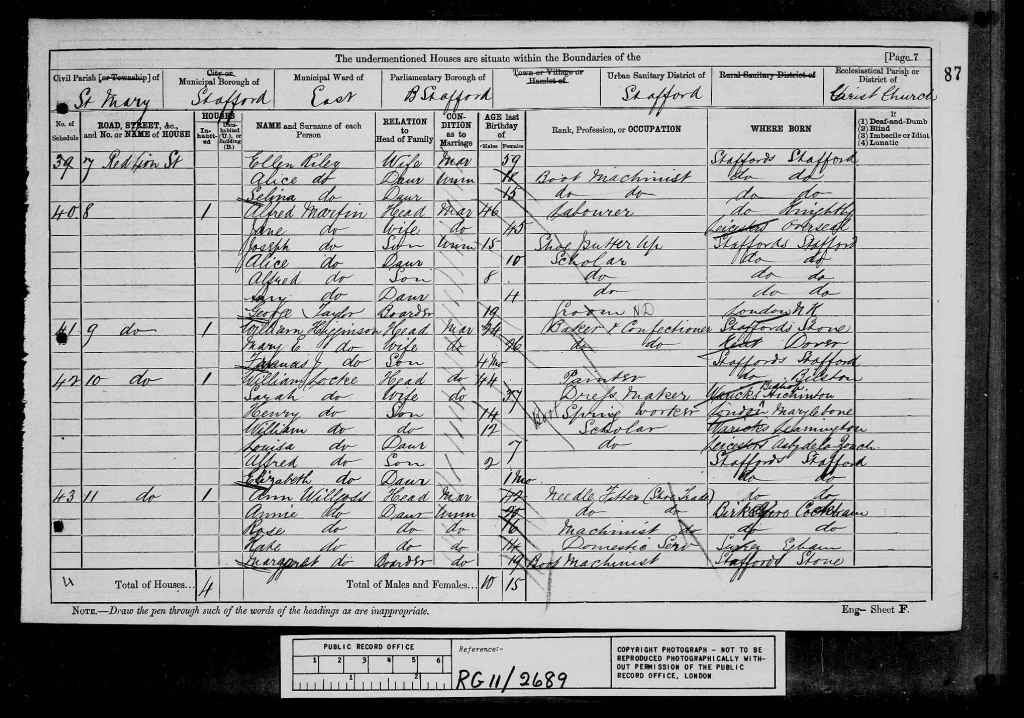 The undermentioned Houses are situate within the Boundaries of the [Page 7
87
Civil Parish [or Township] of City or Municipal Borough of Municipal Ward of Parliamentary Borough of Town or Village or Hamlet of Urban Sanitary District of Rural Sanitary District of Ecclesiastical Parish or District of
St Mary Stafford East B Stafford Stafford Christ Church
No. of Schedule ROAD, STREET, &c., and No. or NAME of HOUSE HOUSES Inhabited Uninhabited (U.), or Building (B.) NAME and Surname of each Person RELATION to Head of Family CONDITION as to Marriage AGE last Birthday of Males Females Rank, Profession, or OCCUPATION WHERE BORN If (1) Deaf-and-Dumb (2) Blind (3) Imbecile or Idiot (4) Lunatic
39 7 Red Lion St Ellen Riley Wife Mar 39 Staffords Stafford
Alice do Daur Unm Boot Machinist do do
Selina do Daur 15 do do do do
40 8 1 Alfred Martin Head Mar 46 Labourer do
Jane do Wife do 45 Leicester Overseal
Joseph do Son Unm 15 Shoe putter Up Staffords Stafford
Alice do Daur 10 Scholar do do
Alfred do Son 8 do do do
do Daur 4 do do do
George Taylor Boarder 19 Groom ND London NK
41 9 do 1 William Higginson Head Mar 24 Baker & Confectioner Staffords Stone
Mary E do Wife do 26 do do Kent Dover
J do Son 4 Mo Staffords Stafford
42 10 do 1 William Locke Head do 44 Painter do Bilston
Sarah do Wife do 37 Dress Maker Waricks Bishop Itchinton
Henry do Son 14 Boot Spring worker London Marylebone
William do do 12 Scholar Waricks Leamington
Louisa do Daur 7 do Leicester Ashy de la Zouch
Alfred do Son 2 Staffords Stafford
Elizabeth do Daur 1 Mo do do
43 11 do 1 Ann Willgoss Head Mar 42 Needle Fitter (Shoe Trade) do do
Annie do Daur Unm do do Cookham
Rose do do do 16 Machinist do do do
Kate do do do 14 Domestic Serv Surrey Egham
Margaret do Boarder do 19 Boot Machinist Staffords Stone
4 Total of Houses... 4 Total of Males and Females... 10 15
NOTE.—Draw the pen through such of the words of the headings as are inappropriate. Eng— Sheet F.
PUBLIC RECORD OFFICE
1 2 3 4 5 6
1 2
Reference:-
RG 11/2689
COPYRIGHT PHOTOGRAPH - NOT TO BE
REPRODUCED PHOTOGRAPHICALLY WITH-
OUT PERMISSION OF THE PUBLIC
RECORD OFFICE, LONDON